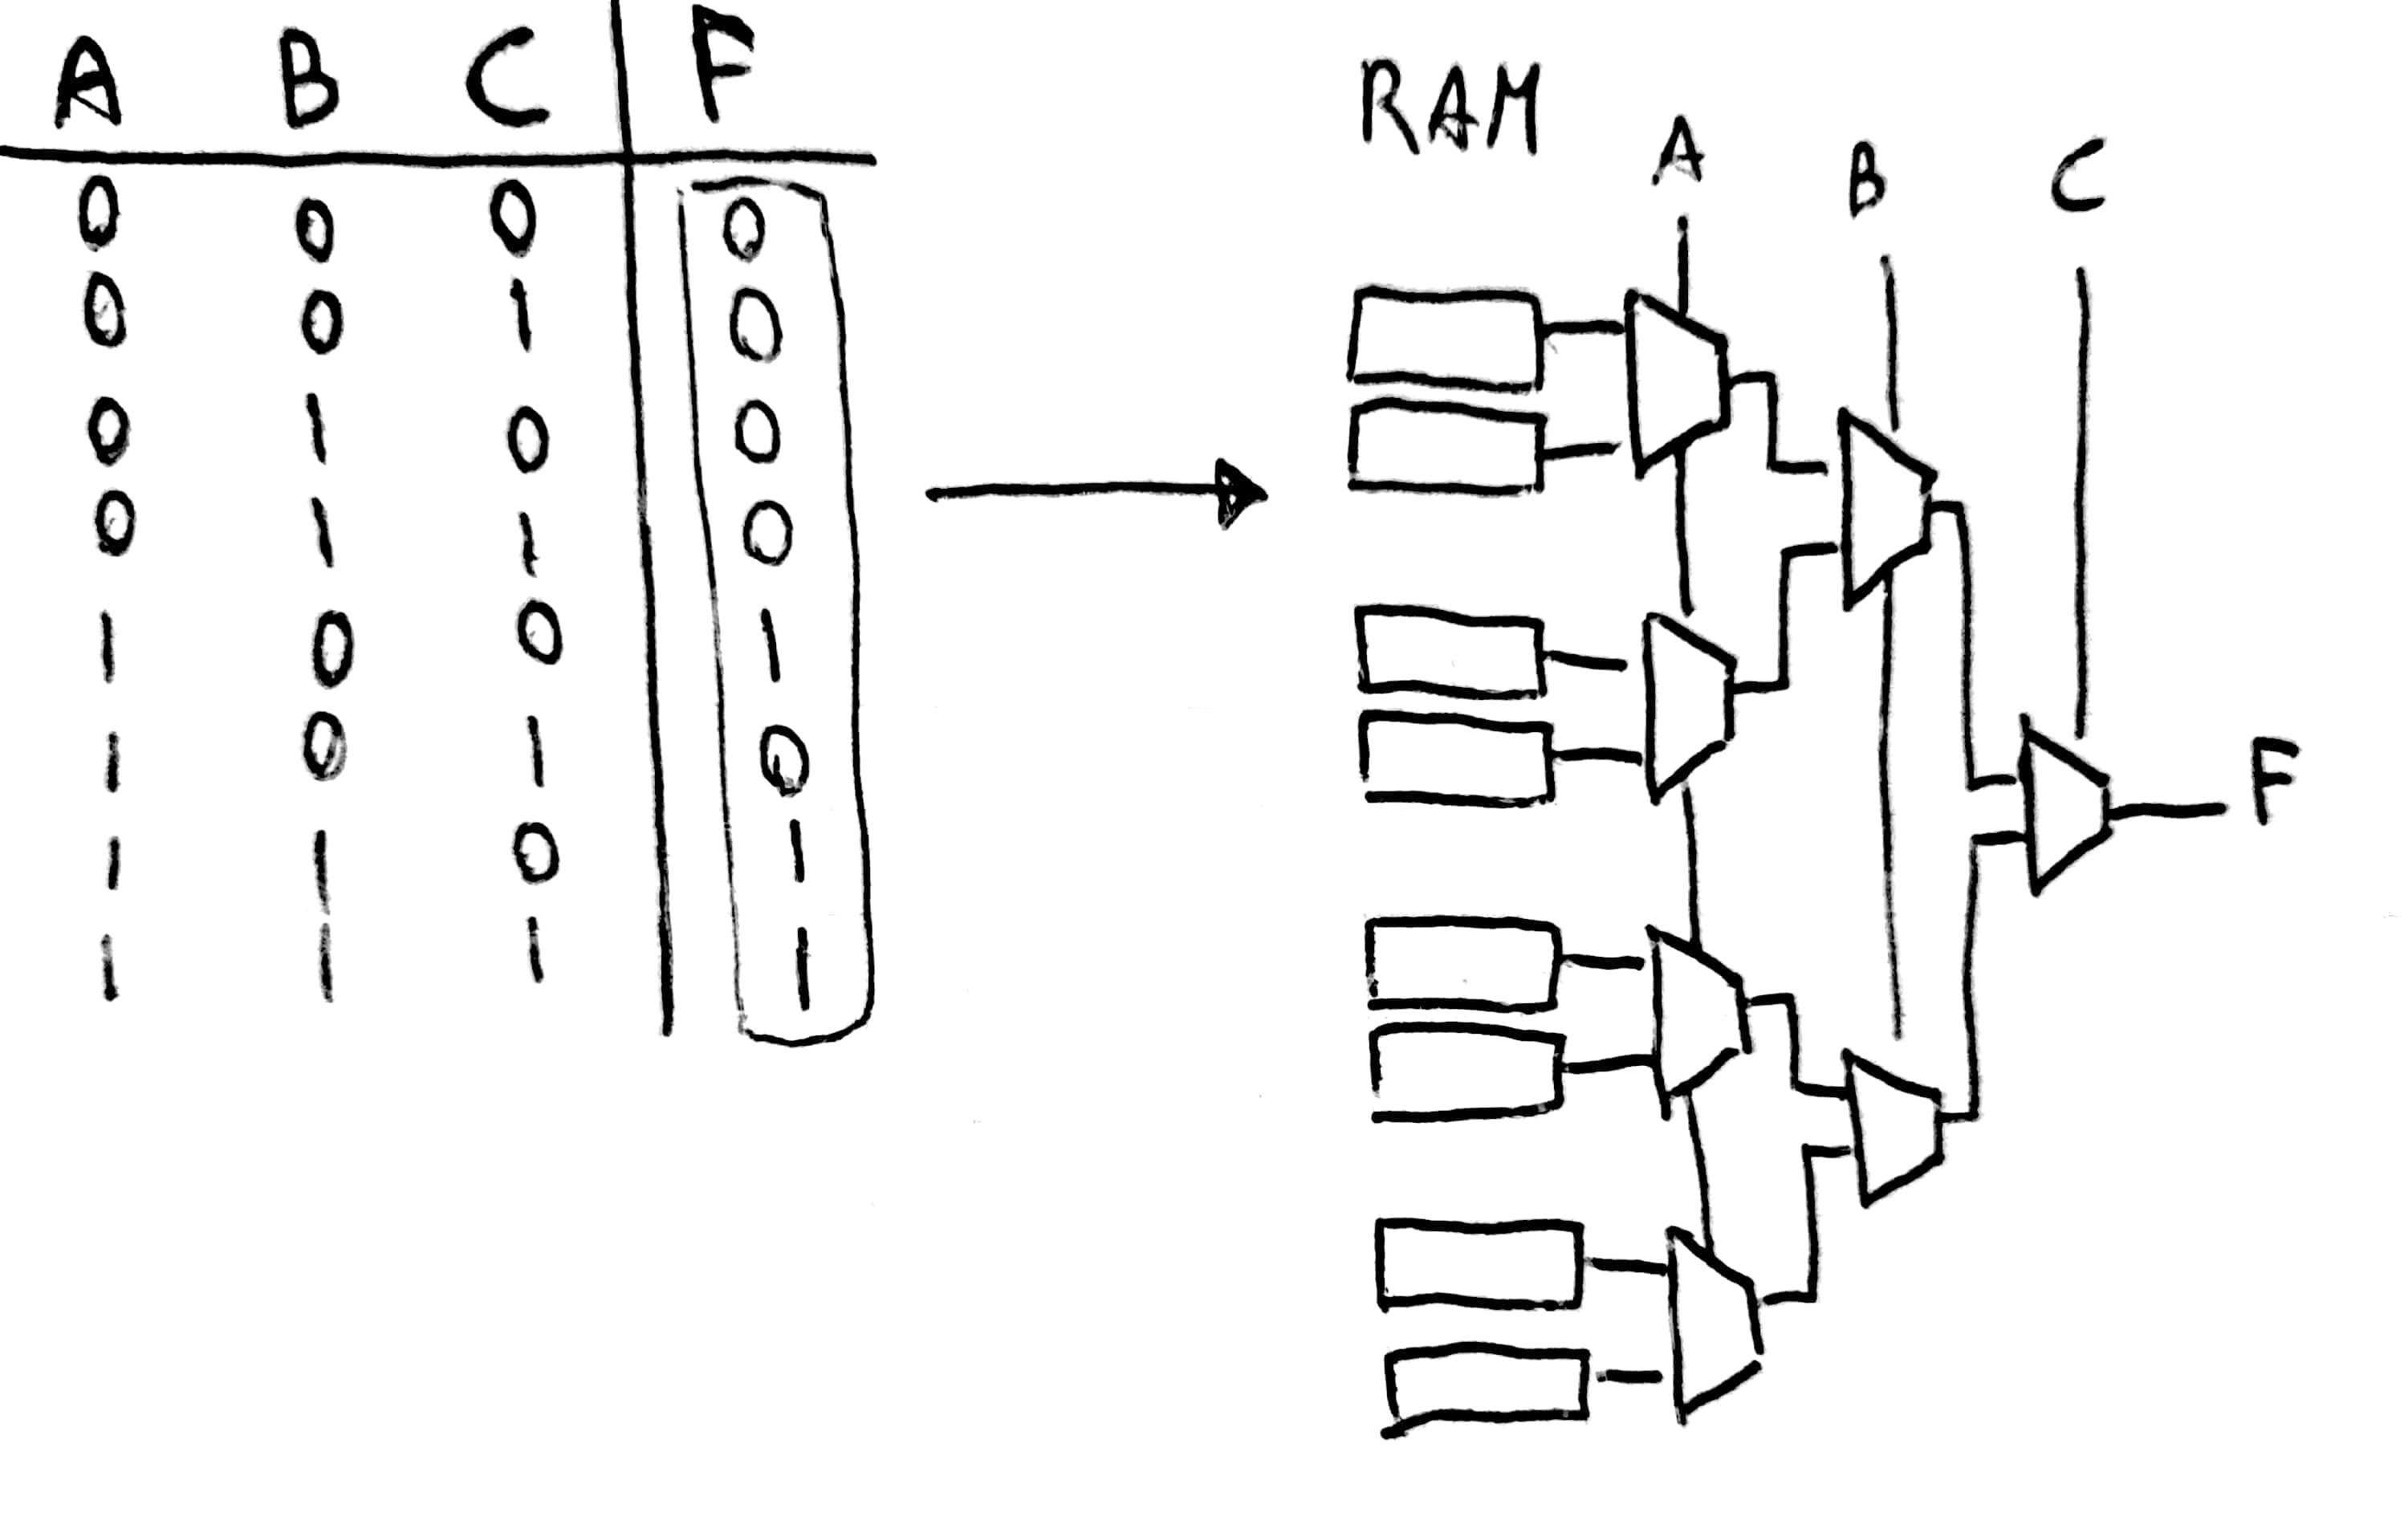 A B C F
0 0 0 0
0 0 1 0
0 1 0 0
0 1 1 0
1 0 0 1
1 0 1 0
1 1 0 1
1 1 1 1
RAM
A B C
F